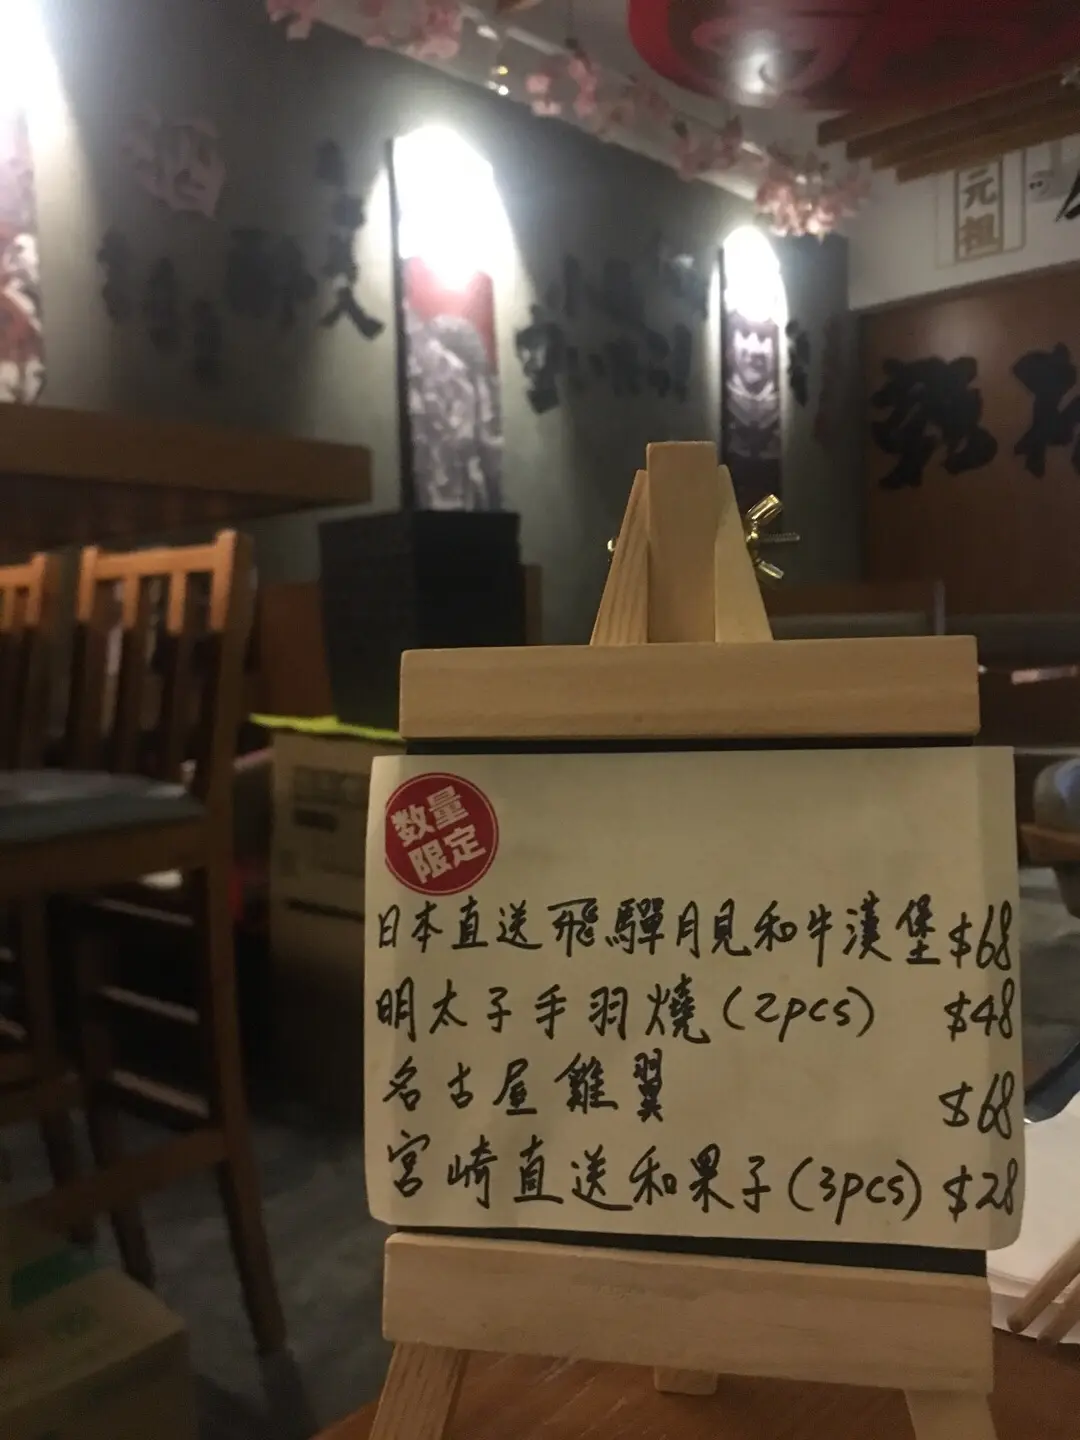 元
祖
数量
限定
日本直送飛驒月見和牛漢堡 $68
明太子手羽燒(2pcs) $48
名古屋雞翼 $68
宮崎直送和果子(3pcs) $28